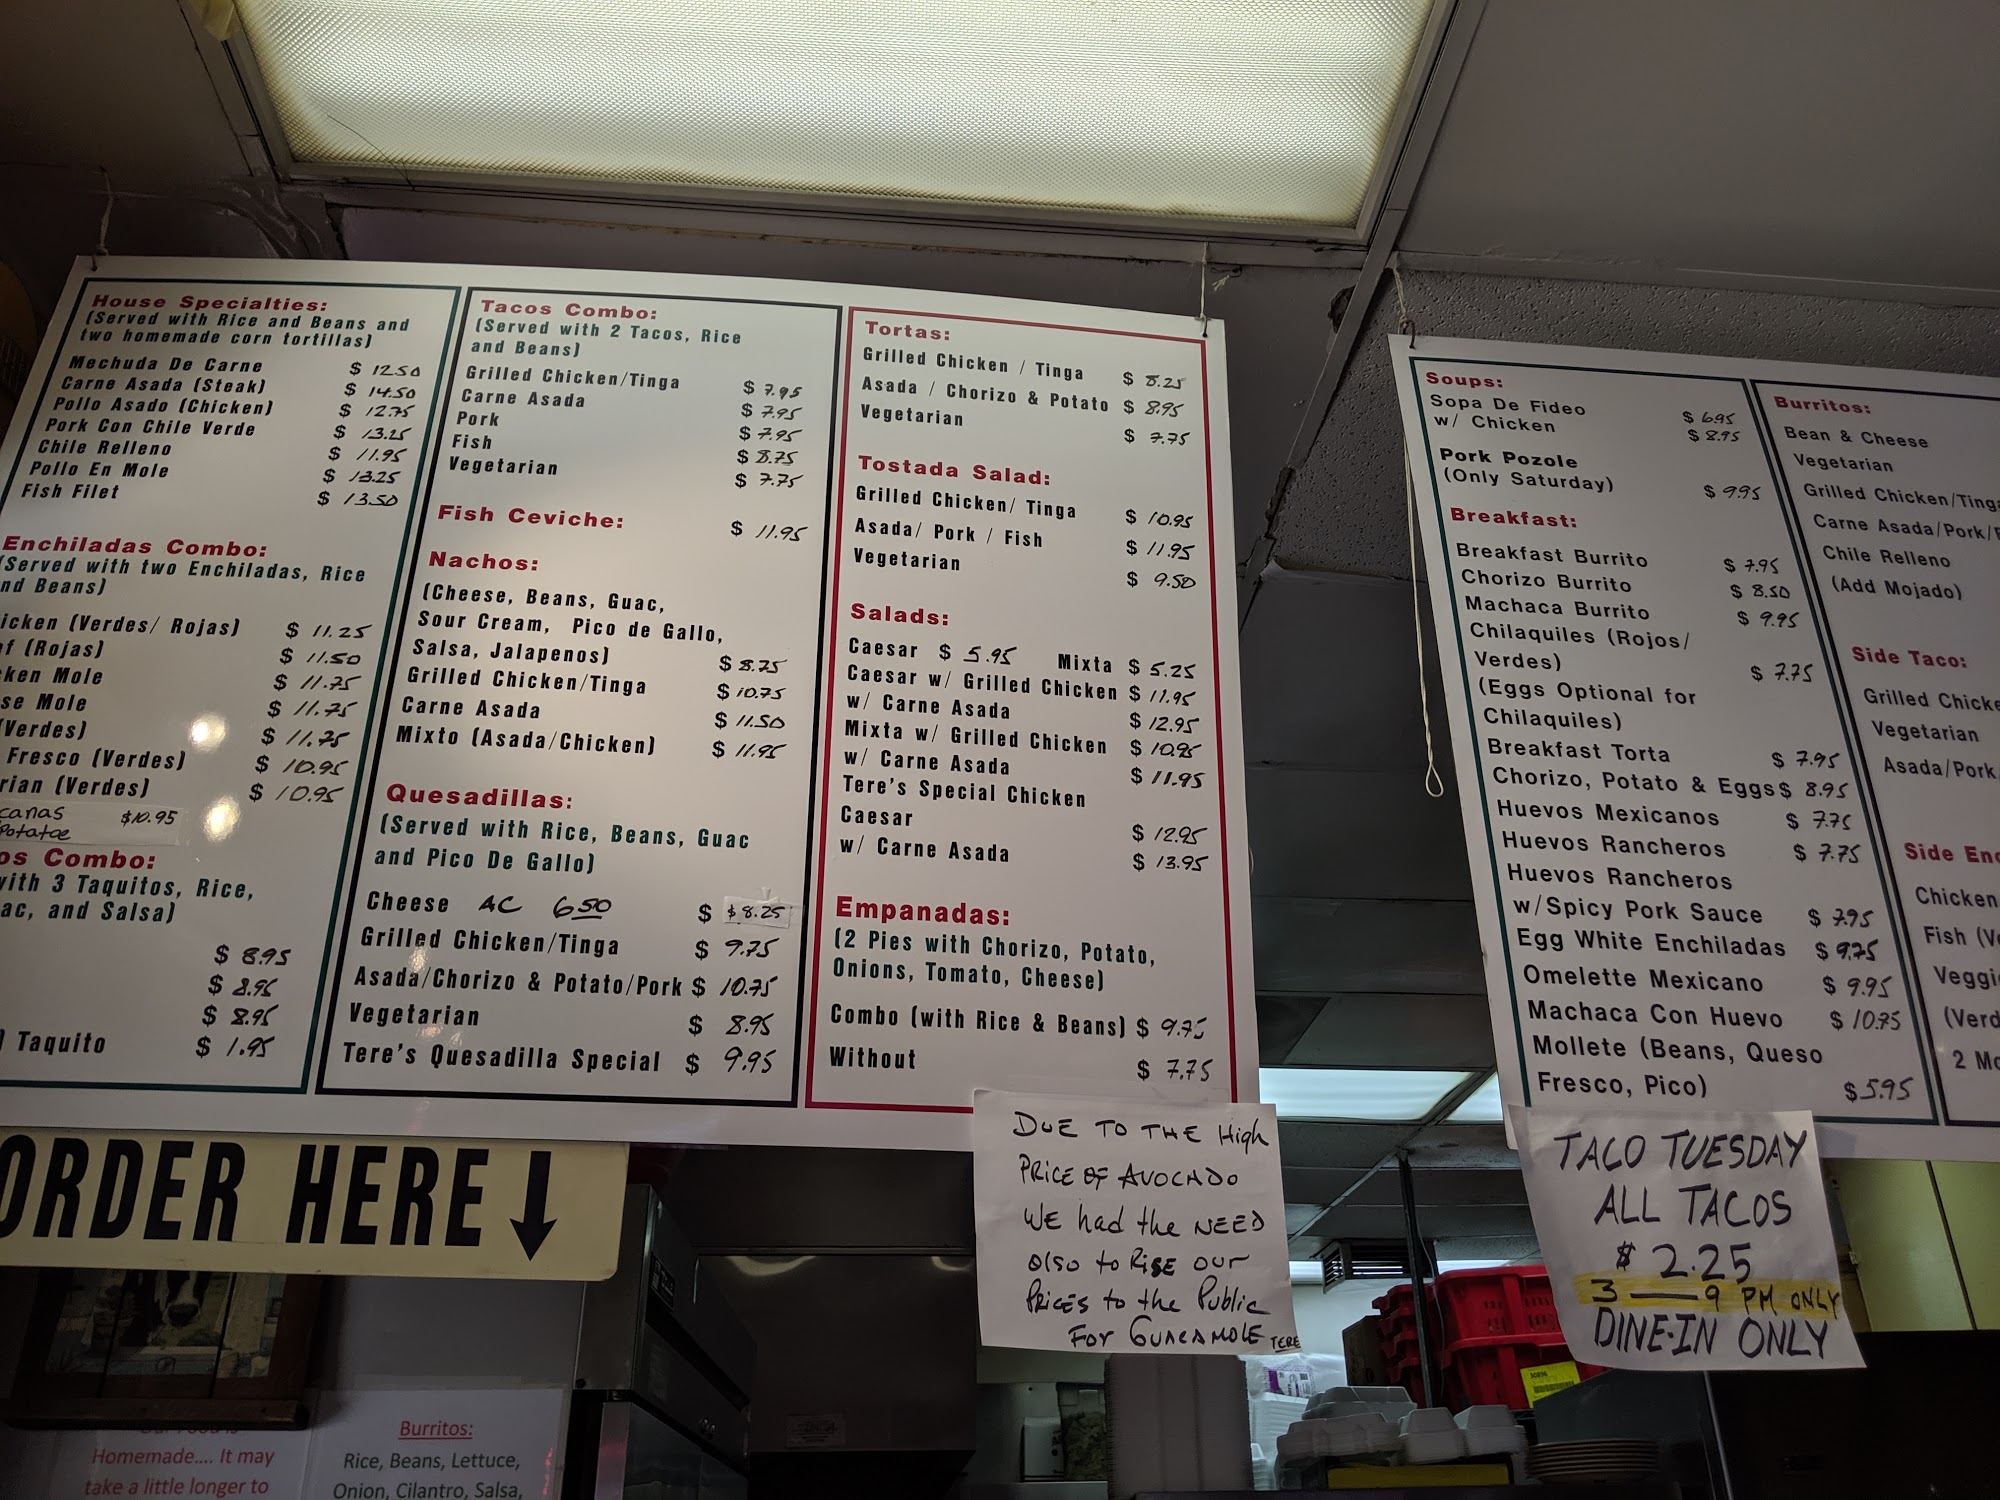 House Specialties:
(Served with Rice and Beans and
two homemade corn tortillas)
Mechuda De Carne $ 12.50
Carne Asada (Steak) $ 14.50
Pollo Asado (Chicken) $ 12.75
Pork Con Chile Verde $ 13.25
Chile Relleno $ 11.95
Pollo En Mole $ 13.25
Fish Filet $ 13.50
Enchiladas Combo:
(Served with two Enchiladas, Rice
nd Beans)
icken (Verdes/ Rojas) $ 11.25
ef (Rojas) $ 11.50
ken Mole $ 11.75
se Mole $ 11.75
(Verdes) $ 11.75
Fresco (Verdes) $ 10.95
rian (Verdes) $ 10.95
canas $10.95
Potatoe
os Combo:
with 3 Taquitos, Rice,
ac, and Salsa)
$ 8.95
$ 8.95
$ 8.95
) Taquito $ 1.95
Tacos Combo:
(Served with 2 Tacos, Rice
and Beans)
Grilled Chicken/Tinga $ 7.95
Carne Asada $ 7.95
Pork $ 7.95
Fish $ 8.75
Vegetarian $ 7.75
Fish Ceviche: $ 11.95
Nachos:
(Cheese, Beans, Guac,
Sour Cream, Pico de Gallo,
Salsa, Jalapenos) $ 8.75
Grilled Chicken/Tinga $ 10.75
Carne Asada $ 11.50
Mixto (Asada/Chicken) $ 11.95
Quesadillas:
(Served with Rice, Beans, Guac
and Pico De Gallo)
Cheese AC 6.50 $ $8.25
Grilled Chicken/Tinga $ 9.75
Asada/Chorizo & Potato/Pork $ 10.75
Vegetarian $ 8.95
Tere's Quesadilla Special $ 9.95
Tortas:
Grilled Chicken / Tinga $ 8.25
Asada / Chorizo & Potato $ 8.95
Vegetarian $ 7.75
Tostada Salad:
Grilled Chicken/ Tinga $ 10.95
Asada/ Pork / Fish $ 11.95
Vegetarian $ 9.50
Salads:
Caesar $ 5.95 Mixta $ 5.25
Caesar w/ Grilled Chicken $ 11.95
w/ Carne Asada $ 12.95
Mixta w/ Grilled Chicken $ 10.95
w/ Carne Asada $ 11.95
Tere's Special Chicken
Caesar $ 12.95
w/ Carne Asada $ 13.95
Empanadas:
(2 Pies with Chorizo, Potato,
Onions, Tomato, Cheese)
Combo (with Rice & Beans) $ 9.75
Without $ 7.75
Soups:
Sopa De Fideo $ 6.95
w/ Chicken $ 8.95
Pork Pozole
(Only Saturday) $ 9.95
Breakfast:
Breakfast Burrito $ 7.95
Chorizo Burrito $ 8.50
Machaca Burrito $ 9.95
Chilaquiles (Rojos/
Verdes) $ 7.75
(Eggs Optional for
Chilaquiles)
Breakfast Torta $ 7.95
Chorizo, Potato & Eggs $ 8.95
Huevos Mexicanos $ 7.75
Huevos Rancheros $ 7.75
Huevos Rancheros
w/Spicy Pork Sauce $ 7.95
Egg White Enchiladas $ 9.75
Omelette Mexicano $ 9.95
Machaca Con Huevo $ 10.75
Mollete (Beans, Queso
Fresco, Pico) $ 5.95
Burritos:
Bean & Cheese
Vegetarian
Grilled Chicken/Tinga
Carne Asada/Pork/
Chile Relleno
(Add Mojado)
Side Taco:
Grilled Chicke
Vegetarian
Asada/Pork/
Side Enc
Chicken
Fish (V
Veggi
(Verd
2 Mo
ORDER HERE ↓
DUE TO THE High
PRICE OF AVOCADO
WE had the NEED
also to RISE OUR
PRICES to the Public
FOR GUACAMOLE TERE
TACO TUESDAY
ALL TACOS
$ 2.25
3 — 9 PM ONLY
DINE-IN ONLY
Our Food is
Homemade.... It may
take a little longer to
Burritos:
Rice, Beans, Lettuce,
Onion, Cilantro, Salsa,